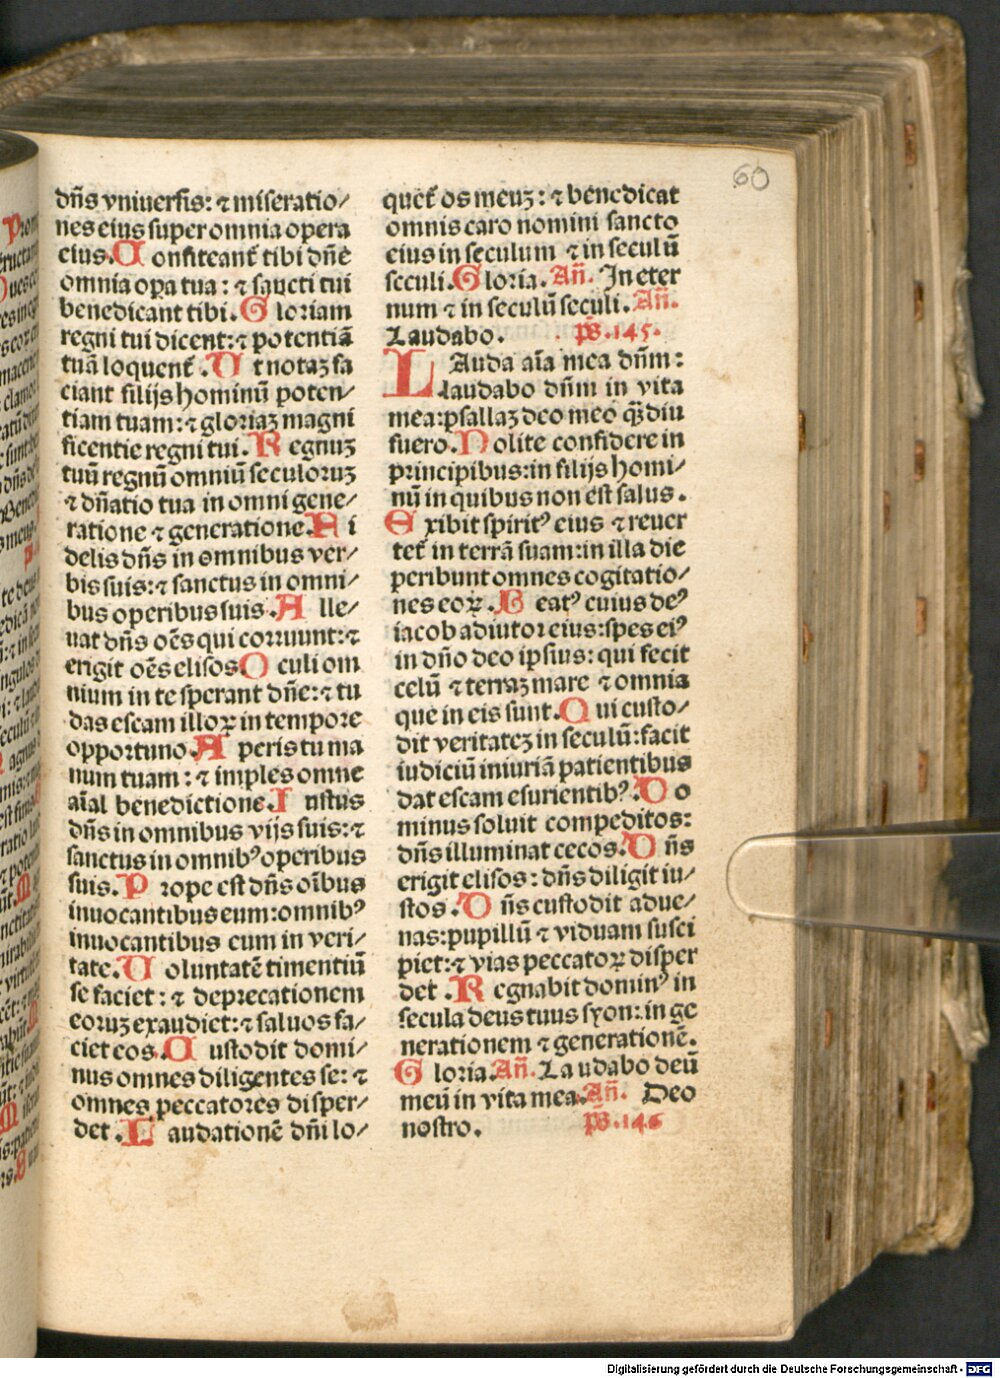 60
dn̄s vniuersis: ⁊ miseratio/
nes eius super omnia opera
eius. C onfiteant᷑ tibi dn̄e
omnia oꝑa tua: ⁊ sancti tui
benedicant tibi. G loriam
regni tui dicent: ⁊ potentiā
tuā loquent᷑. U t notaꝫ fa
ciant filijs hominū poten/
tiam tuam: ⁊ gloriaꝫ magni
ficentie regni tui. R egnuꝫ
tuū regnū omniū seculoruꝫ
⁊ dn̄atio tua in omni gene/
ratione ⁊ generatione. F i
delis dn̄s in omnibus ver/
bis suis: ⁊ sanctus in omni/
bus operibus suis. A lle/
uat dn̄s oēs qui corruunt: ⁊
erigit oēs elisos. O culi om
nium in te sperant dn̄e: ⁊ tu
das escam illoꝝ in tempore
opportuno. A peris tu ma
num tuam: ⁊ imples omne
aīal benedictione. I ustus
dn̄s in omnibus vijs suis: ⁊
sanctus in omnibꝰ operibus
suis. P rope est dn̄s oībus
inuocantibus eum: omnibꝰ
inuocantibus eum in veri/
tate. U oluntatē timentiū
se faciet: ⁊ deprecationem
eoruꝫ exaudiet: ⁊ saluos fa/
ciet eos. C ustodit domi/
nus omnes diligentes se: ⁊
omnes peccatores disper/
det. L audationē dn̄i lo/
quet᷑ os meuꝫ: ⁊ benedicat
omnis caro nomini sancto
eius in seculum ⁊ in seculū
seculi. G loria. An̄. In eter
num ⁊ in seculū seculi. An̄.
Laudabo. ps̄. 145.
L Auda aīa mea dn̄m:
laudabo dn̄m in vita
mea: psallaꝫ deo meo qͣꝫdiu
fuero. N olite confidere in
principibus: in filijs homi/
nū in quibus non est salus.
E xibit spiritꝰ eius ⁊ reuer
tet᷑ in terrā suam: in illa die
peribunt omnes cogitatio/
nes eoꝝ. B eatꝰ cuius deꝰ
iacob adiutor eius: spes eiꝰ
in dn̄o deo ipsius: qui fecit
celū ⁊ terraꝫ mare ⁊ omnia
que in eis sunt. Q ui custo/
dit veritateꝫ in seculū: facit
iudiciū iniuriā patientibus
dat escam esurientibꝰ. D o
minus soluit compeditos:
dn̄s illuminat cecos. D n̄s
erigit elisos: dn̄s diligit iu/
stos. D n̄s custodit adue/
nas: pupillū ⁊ viduam susci
piet: ⁊ vias peccatoꝝ disper
det. R egnabit dominꝰ in
secula deus tuus syon: in ge
nerationem ⁊ generationē.
G loria. An̄. Laudabo deū
meū in vita mea. An̄. Deo
nostro. ps̄. 146
Digitalisierung gefördert durch die Deutsche Forschungsgemeinschaft - DFG